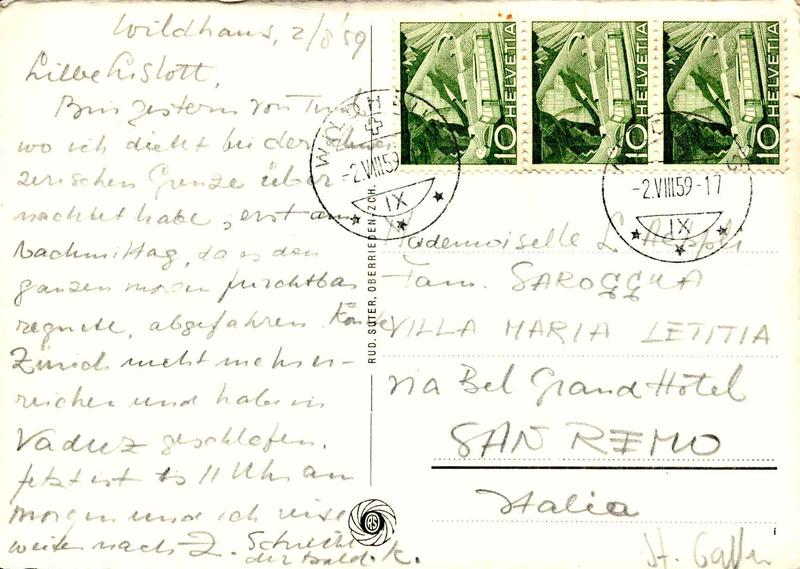 Wildhaus, 2/8 '59
Liebe Lislott,
Bin gestern von
wo ich dicht bei der
zerischen Grenze über
nachtet habe, erst am
Nachmittag, da es den
ganzen morgen furchtbar
regnete, abgefahren. Konnte
Zürich nicht mehr er-
reichen und habe in
Vaduz geschlafen.
Jetzt ist es 11 Uhr am
morgen und ich reise
weiter nach Z.
dir bald. K.
RUD. SUTER, OBERRIEDEN/ZCH.
RS
HELVETIA
10
HELVETIA
10
HELVETIA
10
-2.VIII.59
IX
-2.VIII.59-17
IX
Mademoiselle L.
Fam.
VILLA MARIA LETITIA
via Bel Grand Hotel
SAN REMO
Italia
St. Gallen